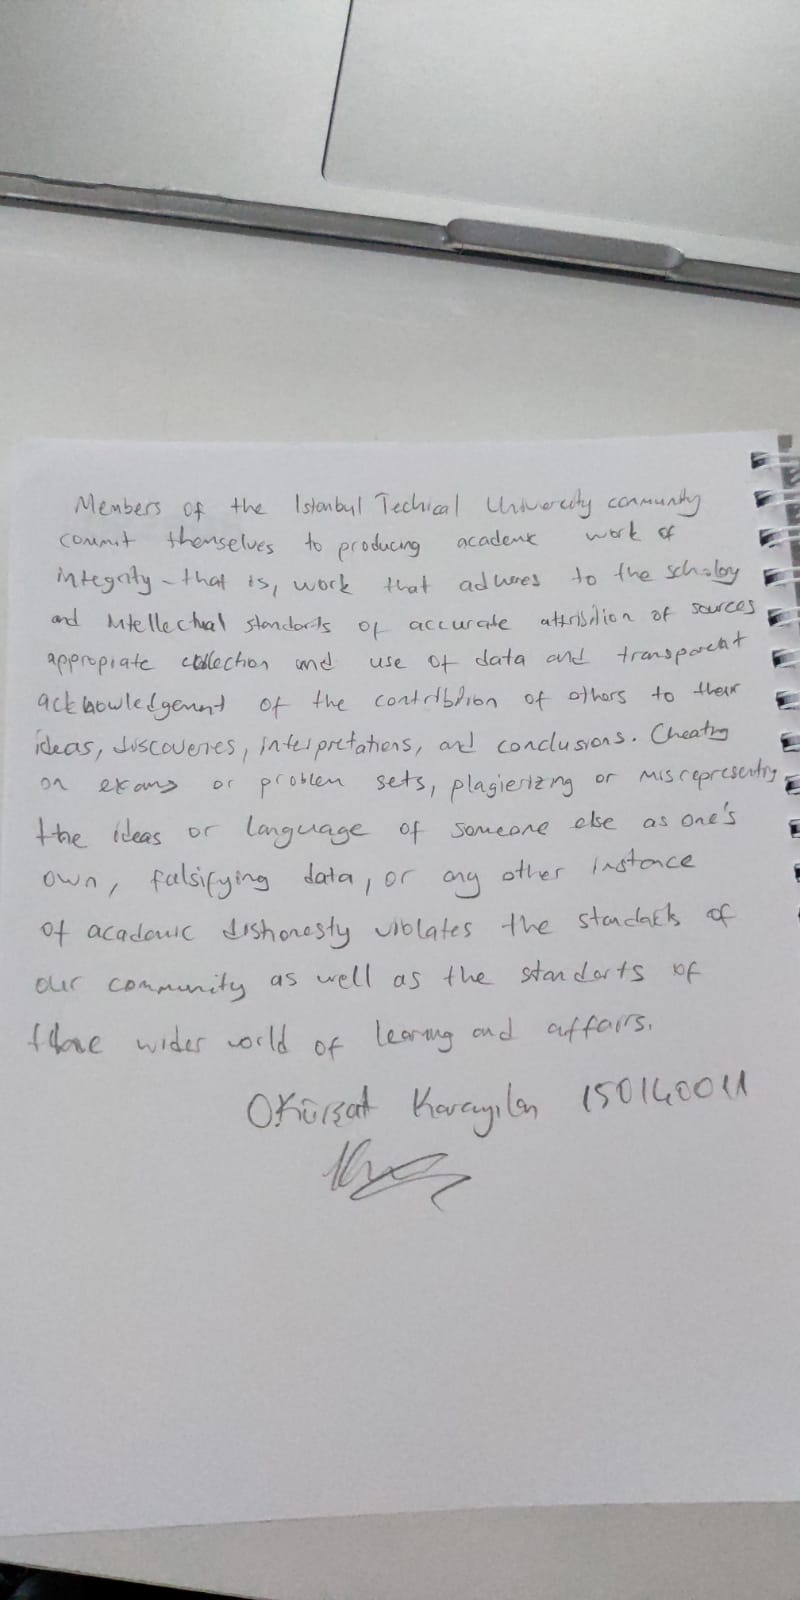 Members of the Istanbul Techical Univercity community
commit themselves to producing academic work of
integrity - that is, work that adheres to the scholary
and intellectual standards of accurate attribition of sources
appropiate collection and use of data and transparent
acknowledgemnt of the contribtion of others to their
ideas, discoveries, interpretations, and conclusions. Cheating
on exams or problem sets, plagierizing or misrepresenting
the ideas or language of someone else as one's
own, falsifying data, or any other instance
of academic dishonesty violates the standarts of
our community as well as the standarts of
the wider world of learning and affairs.
O.Kürşat Karayılan 150140011